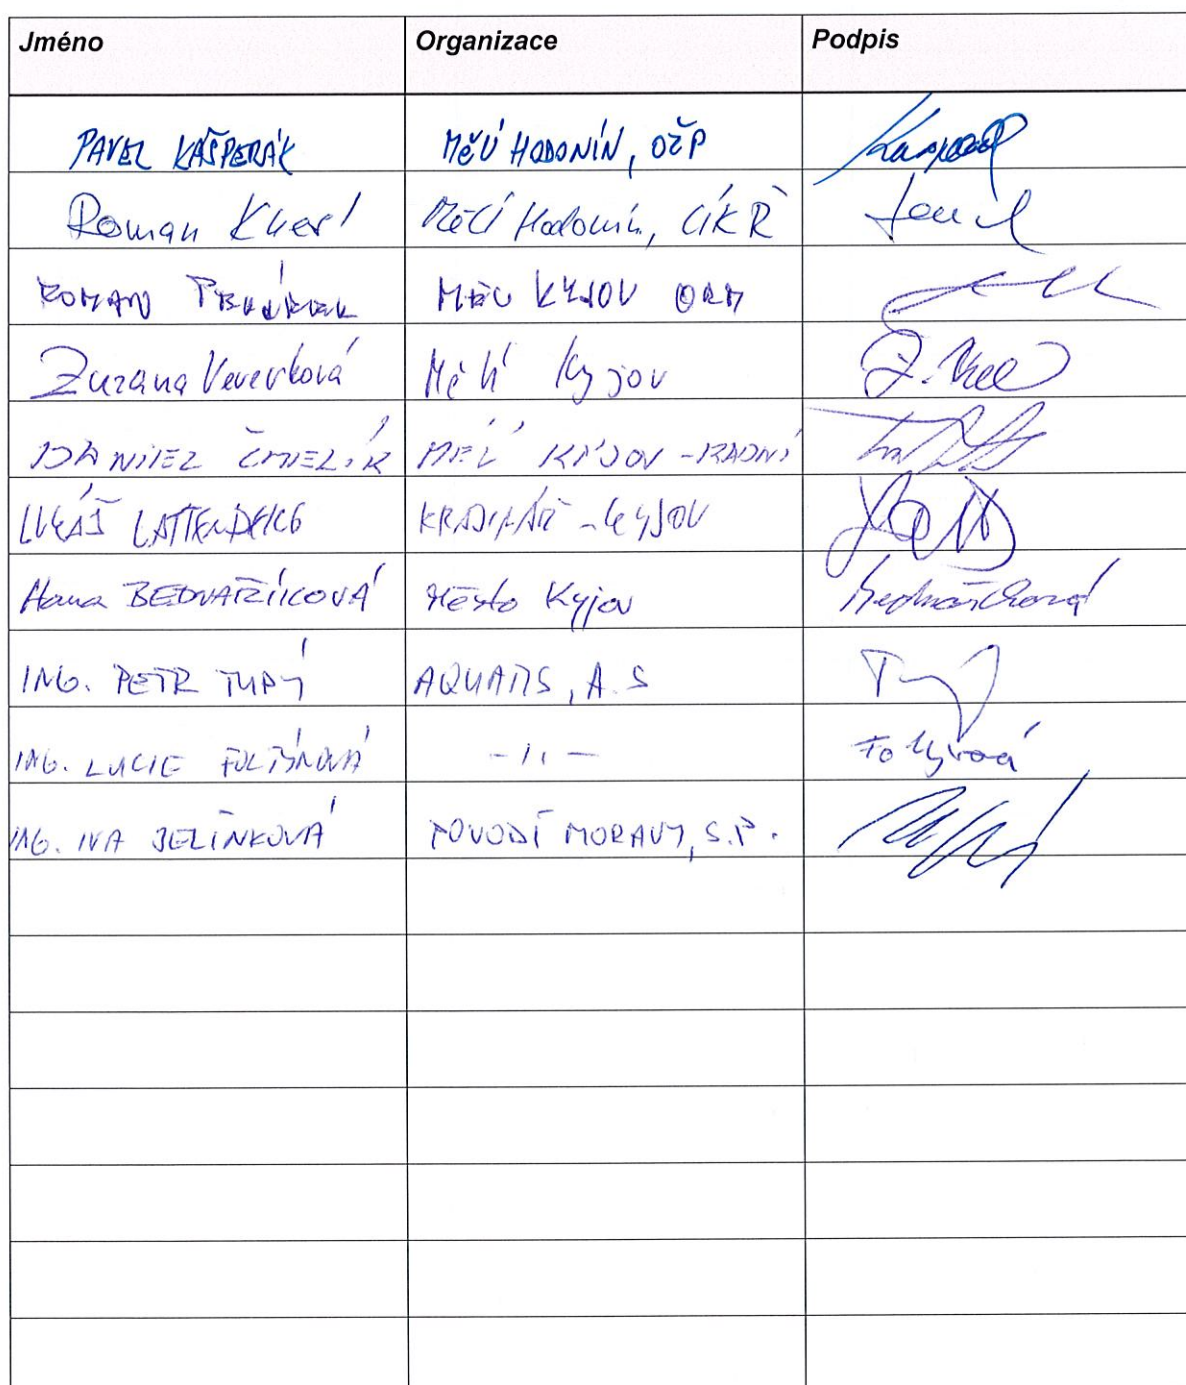 Jméno Organizace Podpis
PAVEL KAŠPERÁK MěÚ HODONÍN, OŽP
Roman MěÚ Hodonín,
ROMAN MĚÚ KYJOV ORM
Zuzana Veverková MěÚ Kyjov Z.
DANIEL ČMELÍK MĚÚ KYJOV - RADNÍ
LUKÁŠ KYJOV
Hana BEDNAŘÍKOVÁ Město Kyjov Bednaříková
ING. PETR TUPÝ AQUATIS, A.S
ING. LUCIE FOLTÝNOVÁ -11- Foltýnová
ING. IVA JELÍNKOVÁ POVODÍ MORAVY, S.P.